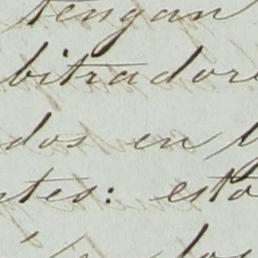 tengan
bitradore
dos en l
ntes: esto
los